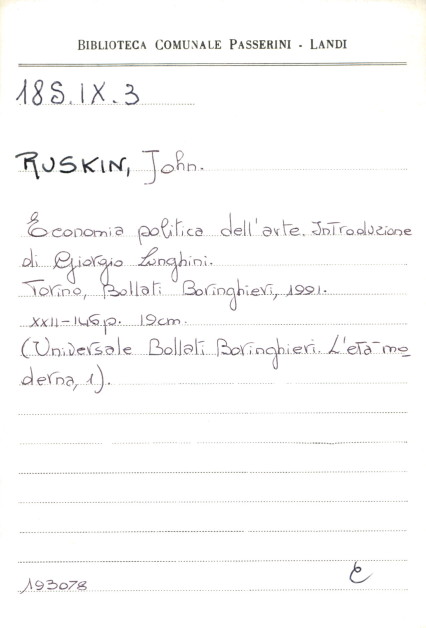 BIBLIOTECA COMUNALE PASSERINI - LANDI
18S.IX.3
RUSKIN, John.
Economia politica dell'arte. Introduzione
di Giorgio Lunghini.
Torino, Bollati Boringhieri, 1991.
XXII-146p. 19cm.
(Universale Bollati Boringhieri. L'età mo
derna, 1).
193078